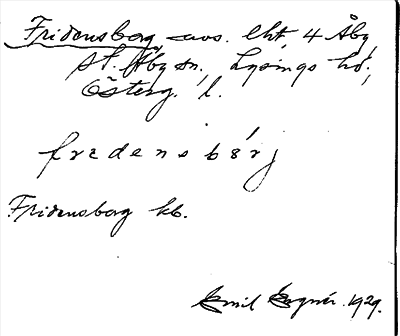 Fridensborg avs. lht, 4 Åby,
St. Åby sn, Lysings hd,
Österg. l.
fredensbårj
Fridensborg kb.
Emil Hagnér 1929.